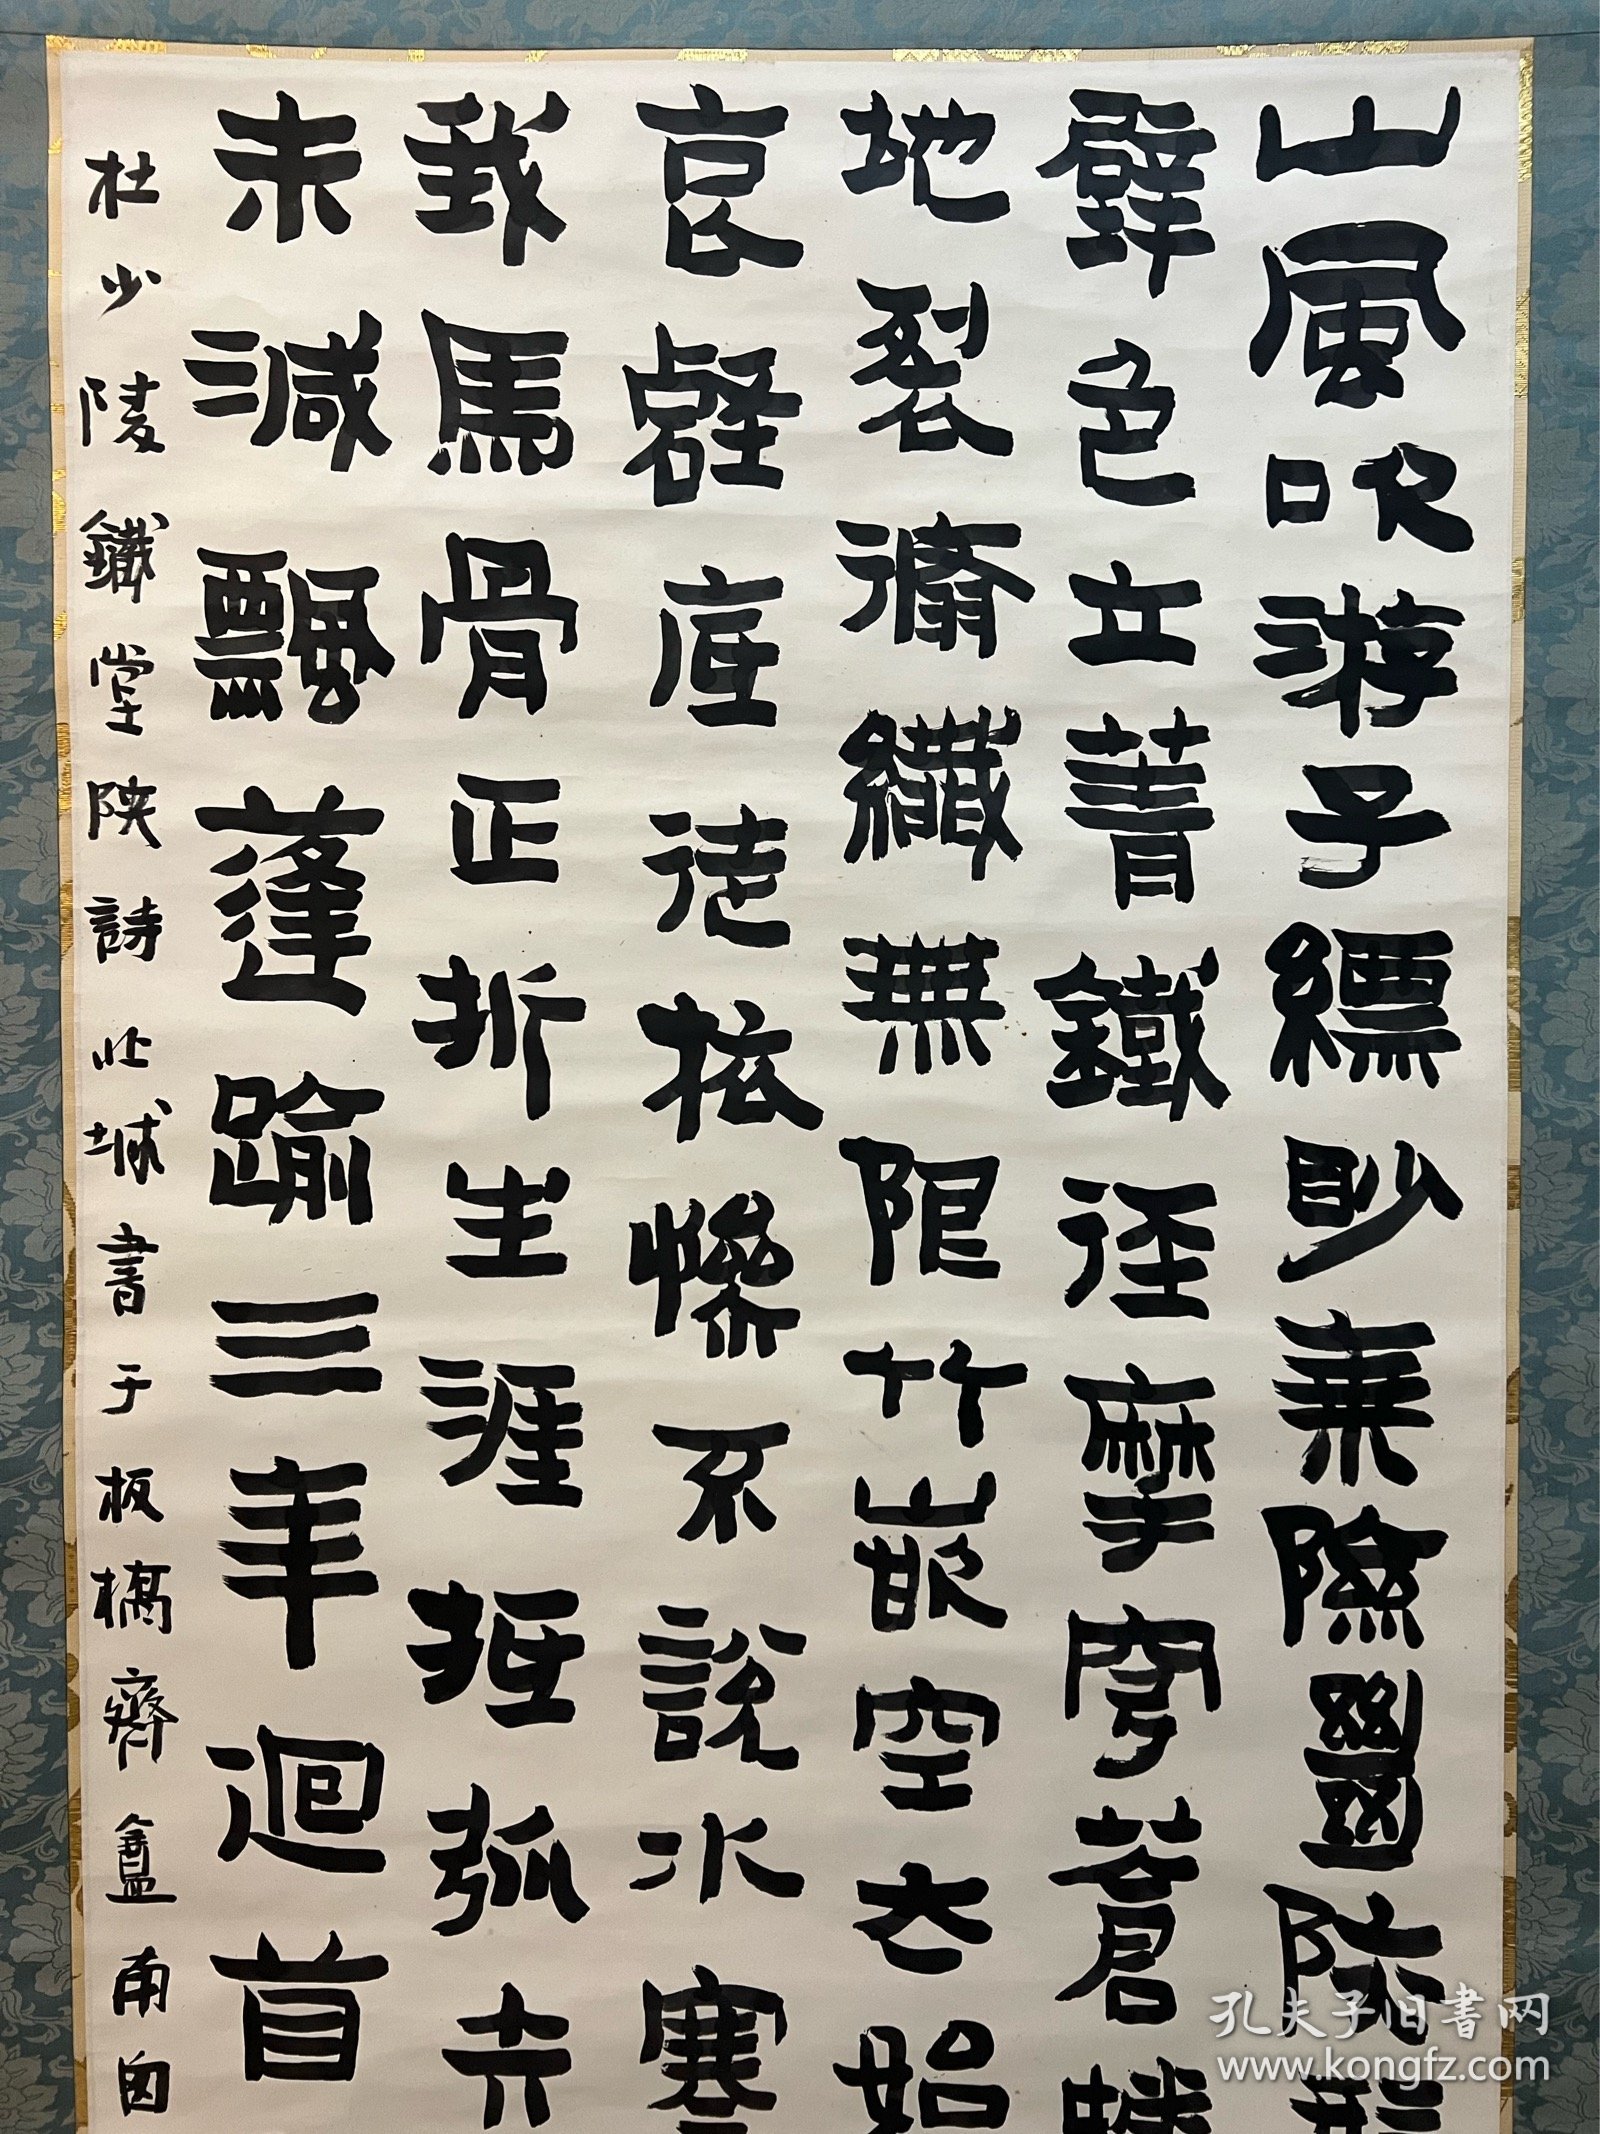 山風吹游子縹眇乘險絕陜形
壁色立鐵徑摩穹蒼蟠
地裂脩纖無限竹嵌空太始
哀壑底徒旅慘不說水寒
我馬骨正折生涯抵弧矢
未滅飄蓬踰三年迴首
杜少陵鐵堂陜詩北城書于板橋齊盦南囪
孔夫子旧书网
www.kongfz.com